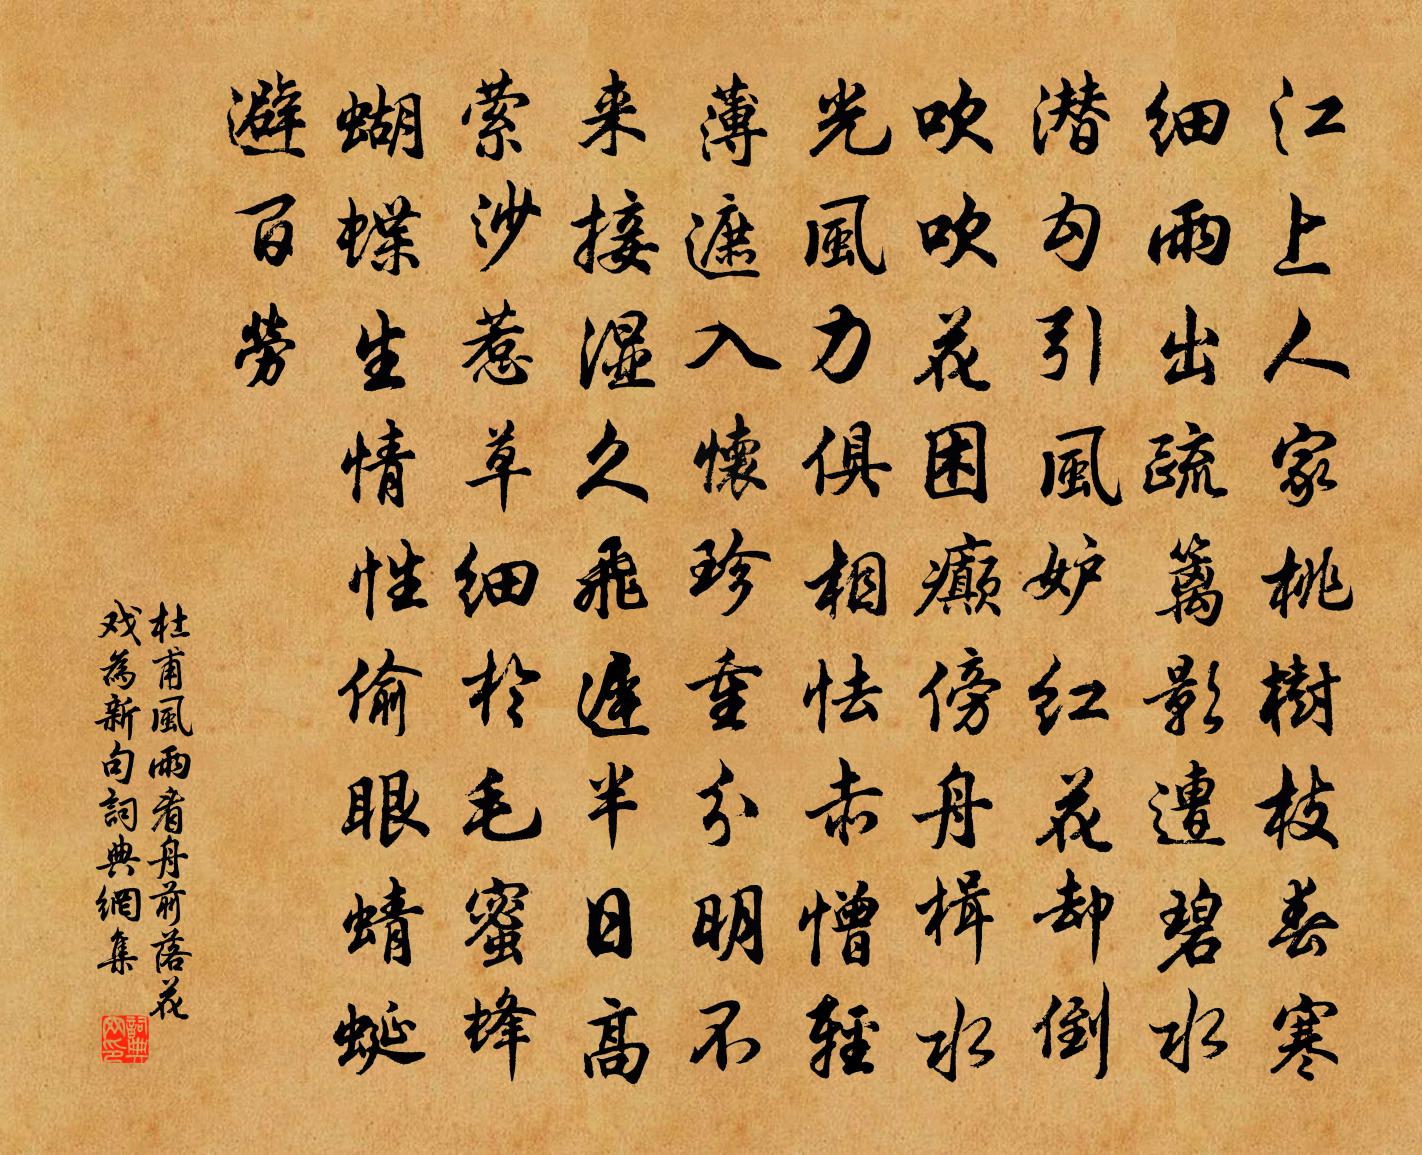 江上人家桃樹枝春寒
细雨出疏篱影遭碧水
潜勾引風妒红花却倒
吹吹花困癲傍舟楫水
光風力俱相怯赤憎輕
薄遮入懷珍重分明不
来接湿久飛遲半日高
萦沙惹草细於毛蜜蜂
蝴蝶生情性偷眼蜻蜓
避百勞
杜甫風雨看舟前落花
戏為新句詞典網集
詞典网印